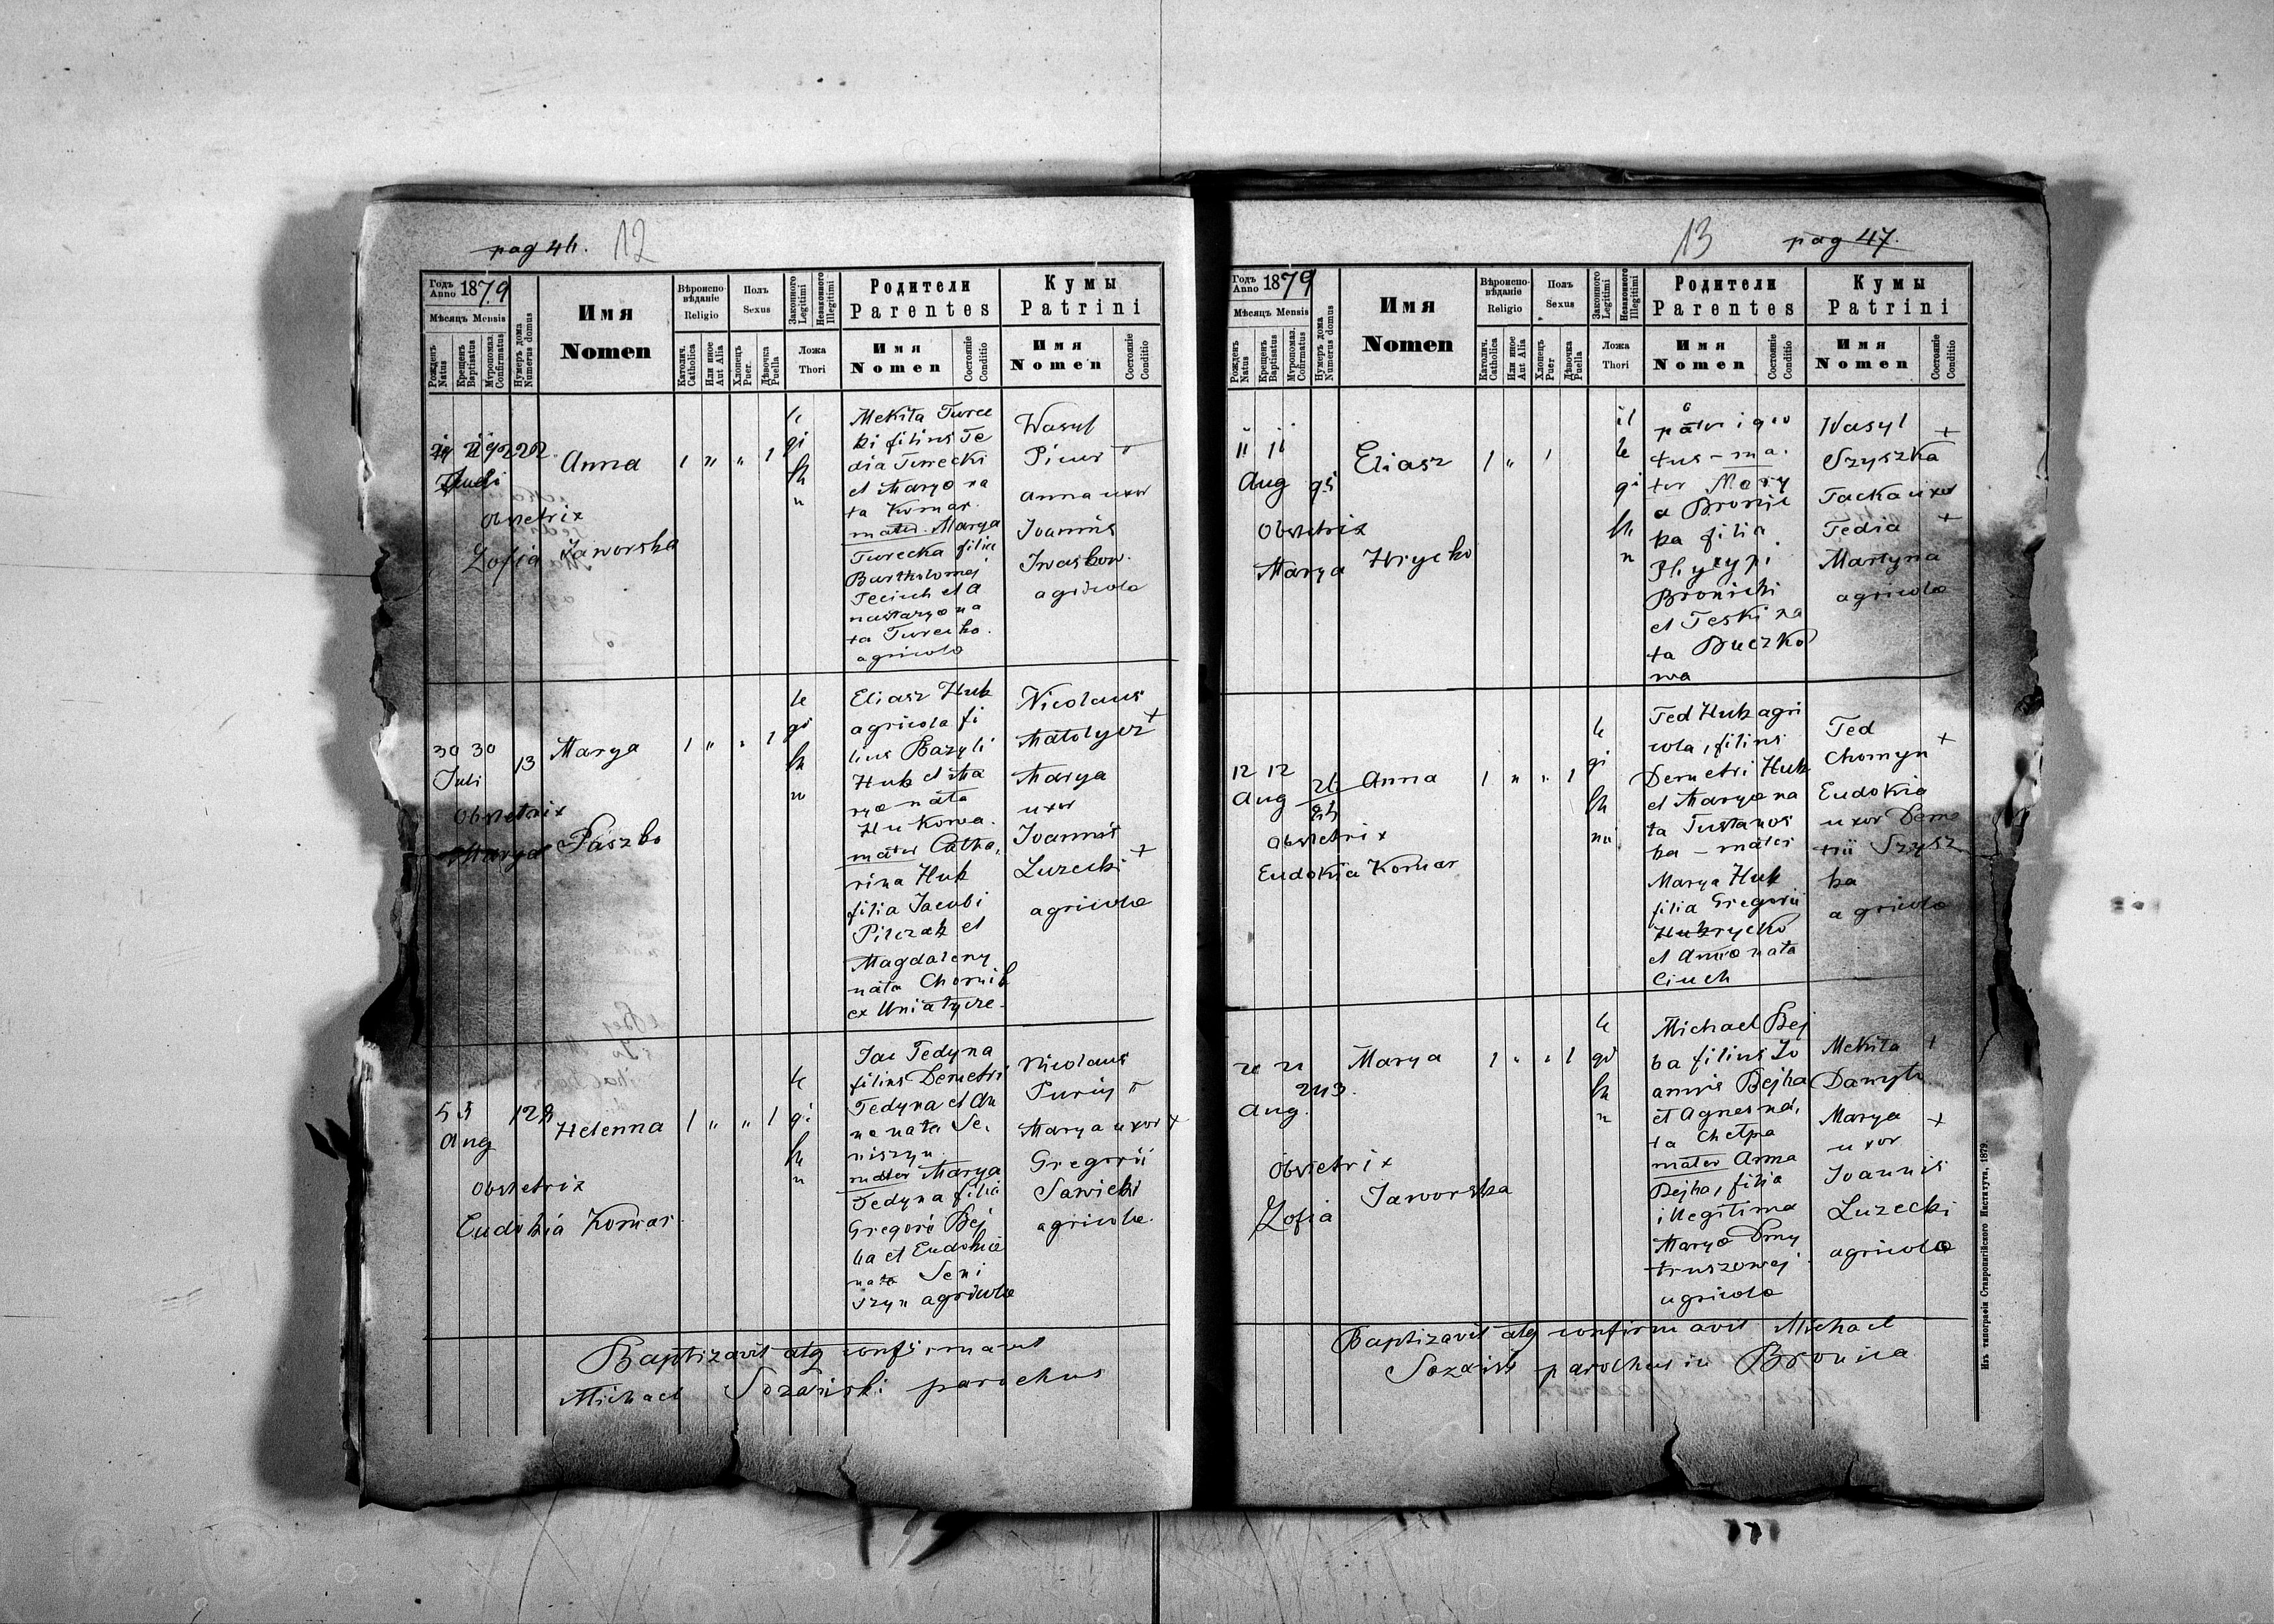 pag 46. 12
Годъ Anno 1879
Мѣсяцъ Mensis
Рожденъ Natus
Крещенъ Baptisatus
Мѵропомаз. Confirmatus
Нумеръ дома Numerus domus
Имя
Nomen
Вѣроиспо-
вѣданіе
Religio
Католич. Catholica
Или иное Aut Alia
Полъ
Sexus
Хлопецъ Puer.
Дѣвочка Puella
Законного Legitimi
Незаконного Illegitimi
Ложа
Thori
Родители
Parentes
Имя
Nomen
Состояніе Conditio
Кумы
Patrini
Имя
Nomen
Состояніе Conditio
222
Anna
1 " " 1
le
gi
th
n
Obstetrix
Zofia Jaworska
Mekita Turec
ki filius Te
dia Turecki
et Marya na
ta Komar.
mater. Marya
Turecka filia
Bartholomej
Teciuch et A
nastarya na
ta Turecka.
agricola
Wasyl
Anna uxor
Joannis
Iwaskow.
agricola
30 30
Juli
13
Marya
1 " " 1
le
gi
th
n
Obstetrix
Marya Paszko
Eliasz Huk
agricola fi
lius Bazyli
Huk et Ma
rya nata
Hukowa.
mater Catha,
rina Huk
filia Jacobi
Pilczak et
Magdaleny
nata Chornib
ex Uniatycze
Nicolaus
Matolycz +
Marya
uxor
Joannis
Luzecki +
agricola
5 5
Aug
128
Helenna
1 " " 1
le
gi
th
n
Obstetrix
Eudokia Komar
Jac Fedyna
filius Demetri
Fedyna et An
na nata Se,
niszyn.
mater Marya
Fedyna filia
Gregori Bej
ba et Eudokia
nata Seni
szyn agricola
Nicolaus
Marya uxor +
Gregorii
Sawicki
agricola.
Baptizavit atq confirmavit
Michael Sozański parochus
13 pag 47.
Годъ Anno 1879
Мѣсяцъ Mensis
Рожденъ Natus
Крещенъ Baptisatus
Мѵропомаз. Confirmatus
Нумеръ дома Numerus domus
Имя
Nomen
Вѣроиспо-
вѣданіе
Religio
Католич. Catholica
Или иное Aut Alia
Полъ
Sexus
Хлопецъ Puer
Дѣвочка Puella
Законного Legitimi
Незаконного Illegitimi
Ложа
Thori
Родители
Parentes
Имя
Nomen
Состояніе Conditio
Кумы
Patrini
Имя
Nomen
Состояніе Conditio
11 11
Aug 95
Eliasz
1 " 1
il
le
gi
th
n
Obstetrix
Marya Hrycko
pater igno
tus - ma.
ter Mary
a Bronic
ka filia
Phylypi
Bronicki
et Teski na
ta Buczko
wa
Wasyl +
Szyszka
Tacka uxor
Fedia +
Martyna
agricola
12 12
Aug
Anna
1 " " 1
le
gi
th
ni
Obstetrix
Eudokia Komar
Fed Huk agri
cola, filius
Demetri Huk
et Marya na
ta Tustanos
ka - mater
Marya Huk
filia Gregorii
Hukrycko
et Anna nata
Ciuch
Fed
Chomyn +
Eudokia
uxor Deme
trii Szysz
ka
agricola
Aug.
243.
Marya
1 " " 1
le
gi
th
n
Obstetrix
Zofia Jaworska
Michael Bej
ba filius Jo
annis Bejba
et Agnes na,
ta Chelpa
mater Anna
Bejba, filia
illegitima
Marya Dmy
truszowej
agricola
Mekita +
Danyls
Marya +
uxor
Joannis
Luzecki
agricola
Baptizavit atq confirmavit Michael
Sozański parochus in Bronica
Изъ типографіи Ставропигійского Института, 1879.